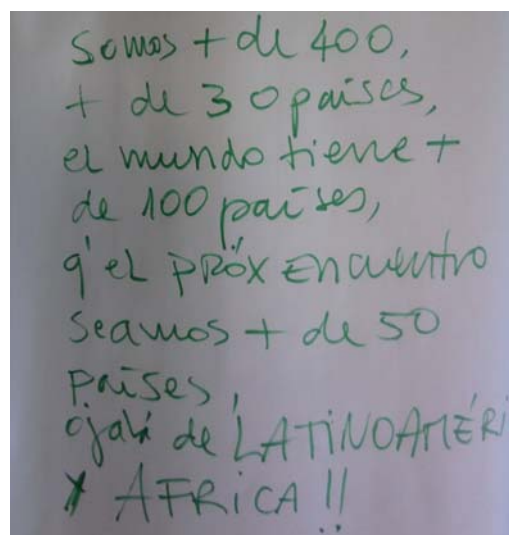 Somos + de 400,
+ de 30 países,
el mundo tiene +
de 100 países,
q' el PRÓX ENCUENTRO
seamos + de 50
países,
ojalá de LATINOAMÉRI
Y AFRICA!!